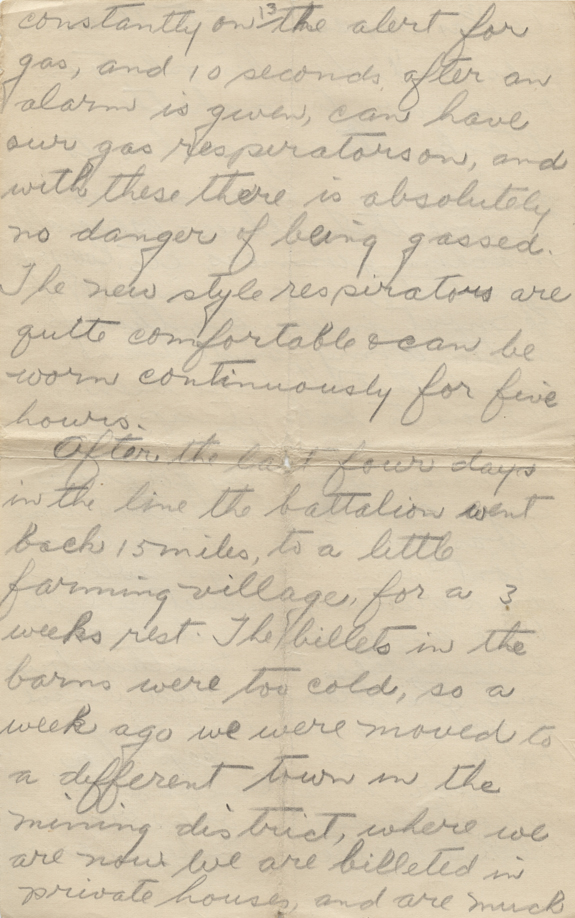 13
constantly on the alert for
gas, and 10 seconds after an
alarm is given, can have
our gas respirators on, and
with these there is absolutely
no danger of being gassed.
The new style respirators are
quite comfortable & can be
worn continuously for five
hours.
After the last four days
in the line the battalion went
back 15 miles, to a little
farming village, for a 3
weeks rest. The billets in the
barns were too cold, so a
week ago we were moved to
a different town in the
mining district, where we
are now. We are billeted in
private houses, and are much